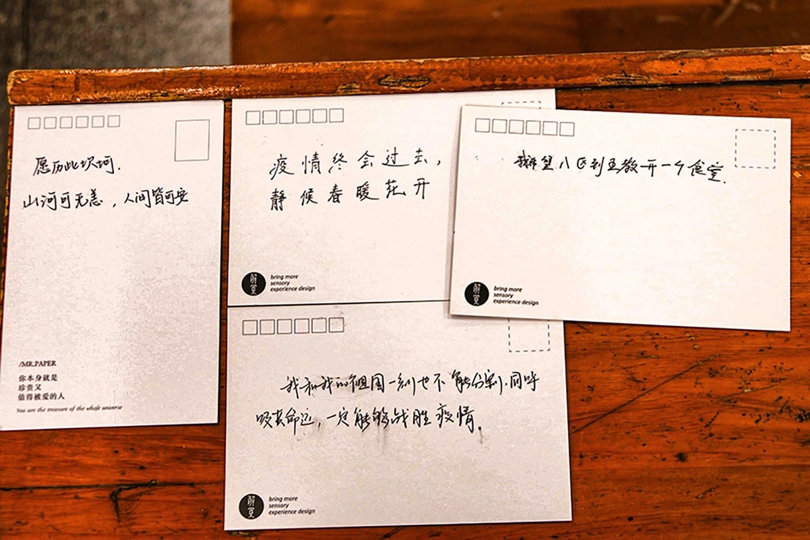 愿历此坎坷.
山河可无恙，人间皆可安
/MR.PAPER
你本身就是
珍贵又
值得被爱的人
You are the treasure of the whole universe
疫情终会过去，
静候春暖花开
bring more
sensory
experience design
我希望八区到五教开一个食堂.
bring more
sensory
experience design
我和我的祖国一刻也不能分割.同呼
吸共命运，一定能够战胜疫情.
bring more
sensory
experience design